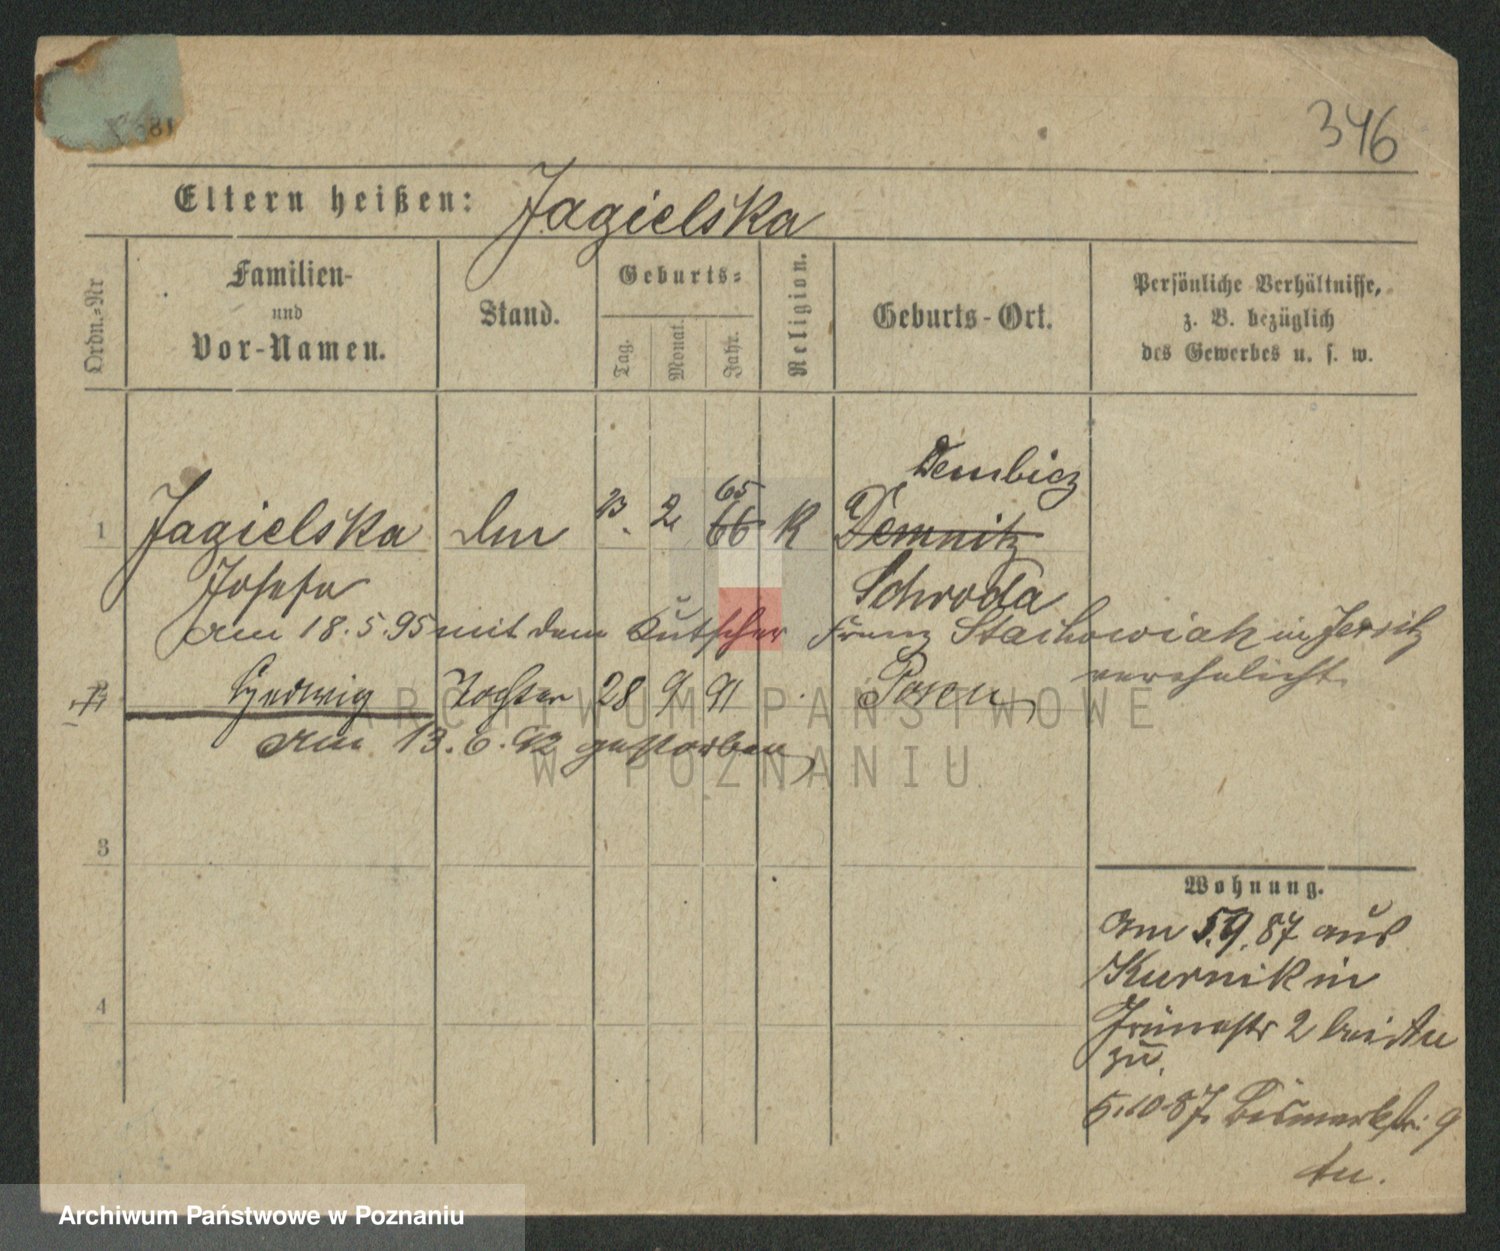 346
Eltern heißen: Jagielska
Ordn.=Nr
Familien-
und
Vor-Namen.
Stand.
Geburts=
Tag.
Monat.
Jahr.
Religion.
Geburts-Ort.
Persönliche Verhältnisse,
z. B. bezüglich
des Gewerbes u. s. w.
Dembicz
65
1 Jagielska 13. 2 66 K Demnitz
Josefa Schroda
am 18.5.95 mit dem Kutscher Franz Stachowiak in Jersitz
verehelicht
Hedwig Tochter 28 9 91 Posen
am 13.6.92 gestorben
3
4
Wohnung.
am 5.9.87 aus
Kurnik in
Grünestr 2
zu.
5.10.87. Bismarkstr. 9
ARCHIWUM PAŃSTWOWE
W POZNANIU
Archiwum Państwowe w Poznaniu